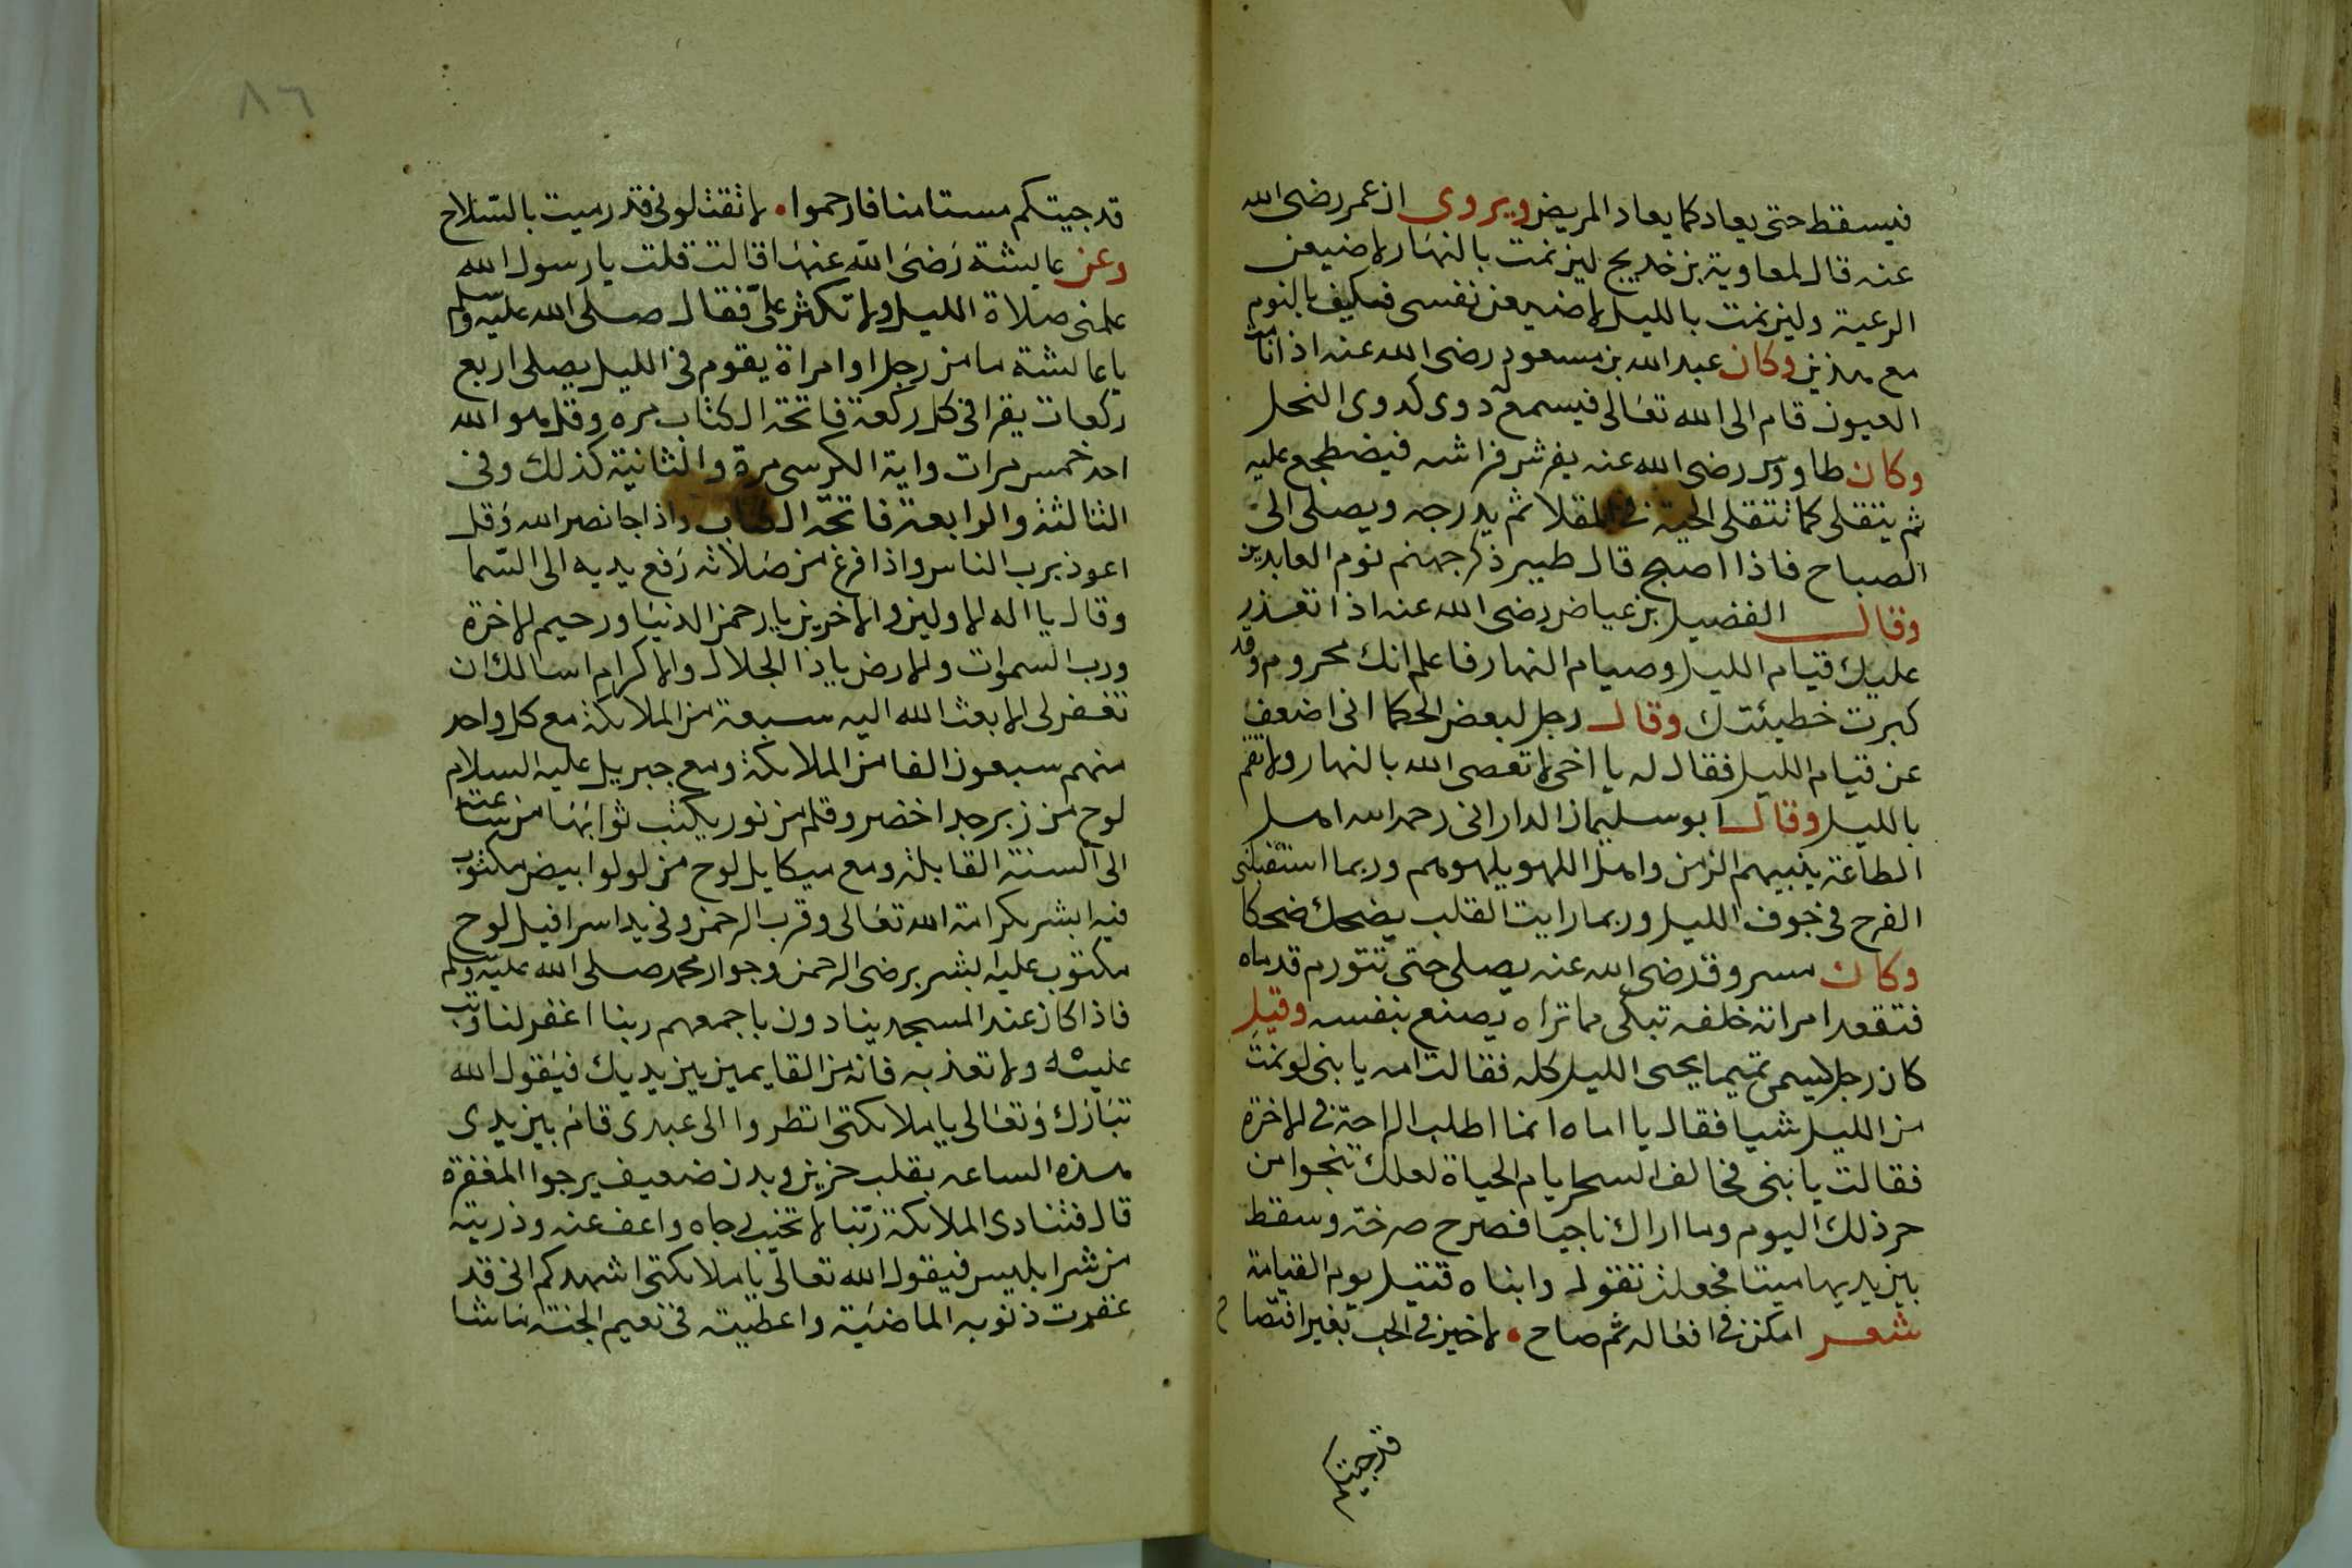 فيسقط حتى يعاد كما يعاد المريض ويروى ان عمر رضى الله
عنه قال لمعاوية بن خديج لين نمت بالنهار لاضيعن
الرعية ولين نمت بالليل لاضيعن نفسى فكيف بالنوم
مع هذين وكان عبد الله بن مسعود رضى الله عنه اذا نامت
العيون قام الى الله تعالى فيسمع له دوى كدوى النحل
وكان طاووس رضى الله عنه يفرش فراشه فيضطجع عليه
ثم يتقلى كما تتقلى الحبة فى المقلا ثم يدرجه ويصلى الى
الصباح فاذا اصبح قال طير ذكر جهنم نوم العابدين
وقال الفضيل بن عياض رضى الله عنه اذا تعذر
عليك قيام الليل وصيام النهار فاعلم انك محروم وقد
كبرت خطيئتك وقال رجل لبعض الحكما انى اضعف
عن قيام الليل فقال له يا اخى لا تعصى الله بالنهار ولا تقم
بالليل وقال ابو سليمان الدارانى رحمه الله اهل
الطاعة بليلهم الذ من اهل اللهو بلهوهم وربما استقبلنى
الفرح فى جوف الليل وربما رايت القلب يضحك ضحكا
وكان مسروق رضى الله عنه يصلى حتى تتورم قدماه
فتقعد امراته خلفه تبكى مما تراه يصنع بنفسه وقيل
كان رجل يسمى تميما يحيى الليل كله فقالت امه يا بنى لو نمت
من الليل شيا فقال يا اماه انما اطلب الراحة فى الاخرة
فقالت يا بنى فخالف السحر ايام الحياة لعلك تنجوا من
حر ذلك اليوم وما اراك ناجيا فصرخ صرخة وسقط
بين يديها ميتا فجعلت تقول وابناه قتيل يوم القيامة
شعر امكننى افعاله ثم صاح • لا خير فى الحب بغير افتضاح
قد جيتكم
٨٦
قد جيتكم مستامنا فارحموا • لا تقتلونى قد رميت بالسلاح
وعن عايشة رضى الله عنها قالت قلت يا رسول الله
علمنى صلاة الليل ولا تكثر علىّ فقال صلى الله عليه وسلم
يا عايشة ما من رجل او امراة يقوم فى الليل يصلى اربع
ركعات يقرا فى كل ركعة فاتحة الكتاب مره وقل هو الله
احد خمس مرات واية الكرسى مرة والثانية كذلك وفى
الثالثة والرابعة فاتحة الكتاب واذا جا نصر الله وقل
اعوذ برب الناس واذا فرغ من صلاته رفع يديه الى السّما
وقال يا اله الاولين والاخرين يا رحمن الدنيا ورحيم الاخرة
ورب السموات والارض يا ذا الجلال والاكرام اسالك ان
تغفر لى الا بعث الله اليه سبعة من الملايكة مع كل واحد
منهم سبعون الفا من الملايكة ومع جبريل عليه السلام
لوح من زبرجد اخضر وقلم من نور يكتب ثوابها من ساعته
الى السنة القابلة ومع ميكايل لوح من لولوا ابيض مكتوب
فيه ابشر بكرامة الله تعالى وقرب الرحمن وفى يد اسرافيل لوح
مكتوب عليه ابشر برضى الرحمن وجوار محمد صلى الله عليه وسلم
فاذا كان عند المسجد ينادون باجمعهم ربنا اغفر لنا وتب
عليه ولا تعذبه فانه من القايمين بين يديك فيقول الله
تبارك وتعالى يا ملايكتى انظروا الى عبدى قام بين يدى
هذه الساعه بقلب حزين وبدن ضعيف يرجوا المغفرة
قال فتنادى الملايكة ربّنا لا تخيب رجاه واعف عنه وذريته
من شر ابليس فيقول الله تعالى يا ملايكتى اشهدكم انى قد
غفرت ذنوبه الماضية واعطيته فى نعيم الجنة ما شا